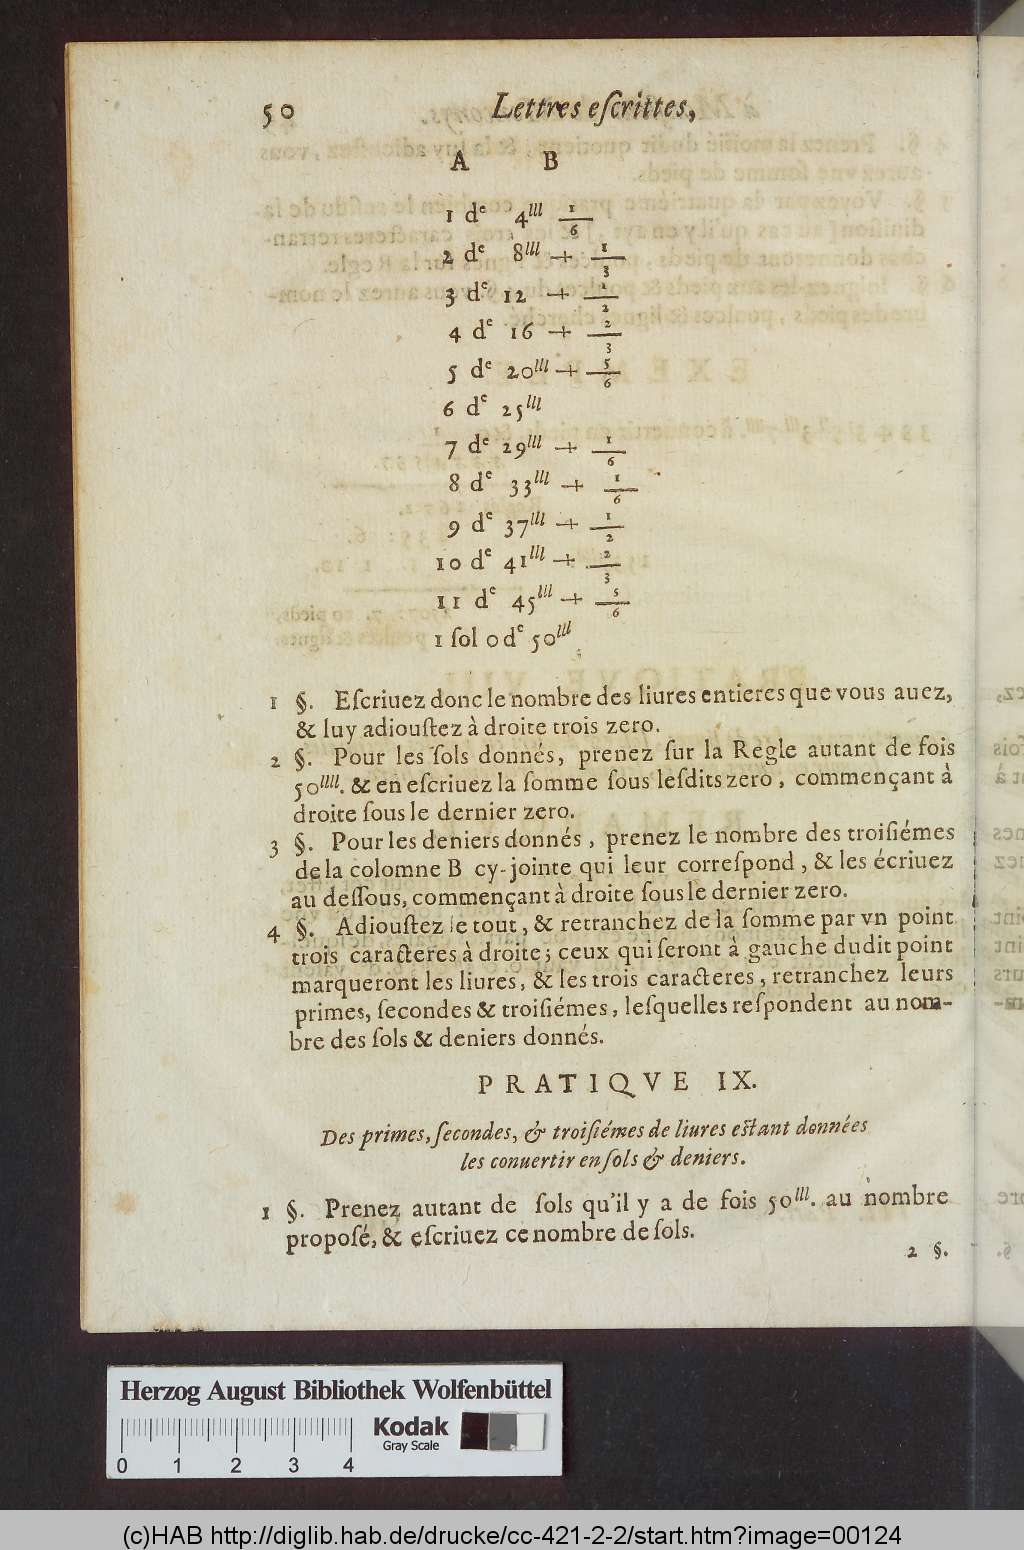 50 Lettres eſcrittes,
A B
1 dᵉ 4ˡˡˡ 1/6
2 dᵉ 8ˡˡˡ + 1/3
3 dᵉ 12 + 1/2
4 dᵉ 16 + 2/3
5 dᵉ 20ˡˡˡ + 5/6
6 dᵉ 25ˡˡˡ
7 dᵉ 29ˡˡˡ + 1/6
8 dᵉ 33ˡˡˡ + 1/6
9 dᵉ 37ˡˡˡ + 1/2
10 dᵉ 41ˡˡˡ + 2/3
11 dᵉ 45ˡˡˡ + 5/6
1 ſol 0 dᵉ 50ˡˡˡ
1 §. Eſcriuez donc le nombre des liures entieres que vous auez,
& luy adiouſtez à droite trois zero.
2 §. Pour les ſols donnés, prenez ſur la Regle autant de fois
50ˡˡˡˡ. & en eſcriuez la ſomme ſous leſdits zero, commençant à
droite ſous le dernier zero.
3 §. Pour les deniers donnés, prenez le nombre des troiſiémes
de la colomne B cy-jointe qui leur correſpond, & les écriuez
au deſſous, commençant à droite ſous le dernier zero.
4 §. Adiouſtez le tout, & retranchez de la ſomme par vn point
trois caracteres à droite; ceux qui ſeront à gauche dudit point
marqueront les liures, & les trois caracteres, retranchez leurs
primes, ſecondes & troiſiémes, leſquelles reſpondent au nom-
bre des ſols & deniers donnés.
PRATIQVE IX.
Des primes, ſecondes, & troiſiémes de liures eſtant données
les conuertir en ſols & deniers.
1 §. Prenez autant de ſols qu'il y a de fois 50ˡˡˡ. au nombre
propoſé, & eſcriuez ce nombre de ſols.
2 §.
Herzog August Bibliothek Wolfenbüttel
Kodak
Gray Scale
0 1 2 3 4
(c)HAB http://diglib.hab.de/drucke/cc-421-2-2/start.htm?image=00124